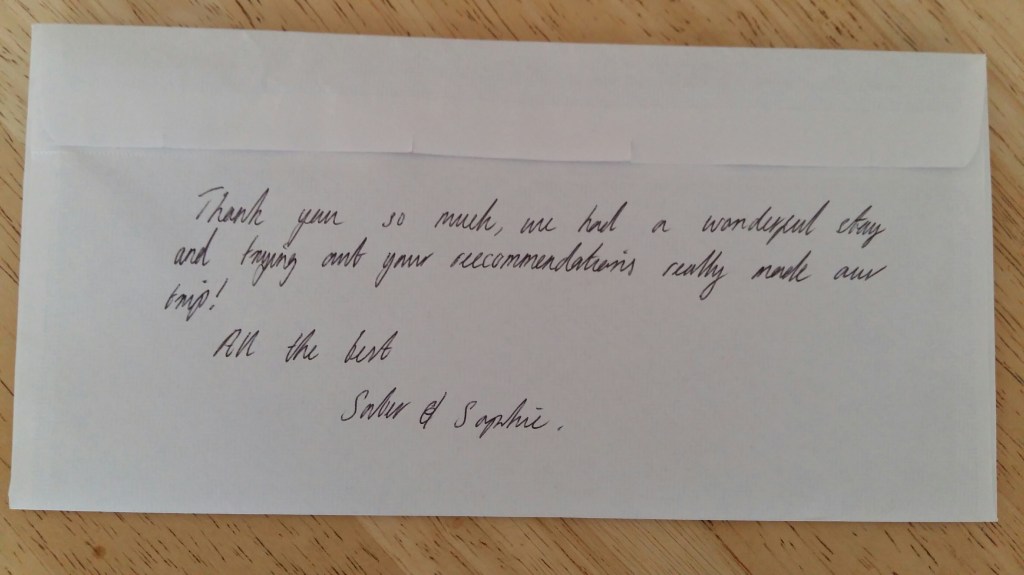 Thank you so much, we had a wonderful stay
and trying out your reccommendations really made our
trip!
All the best
& Sophie.